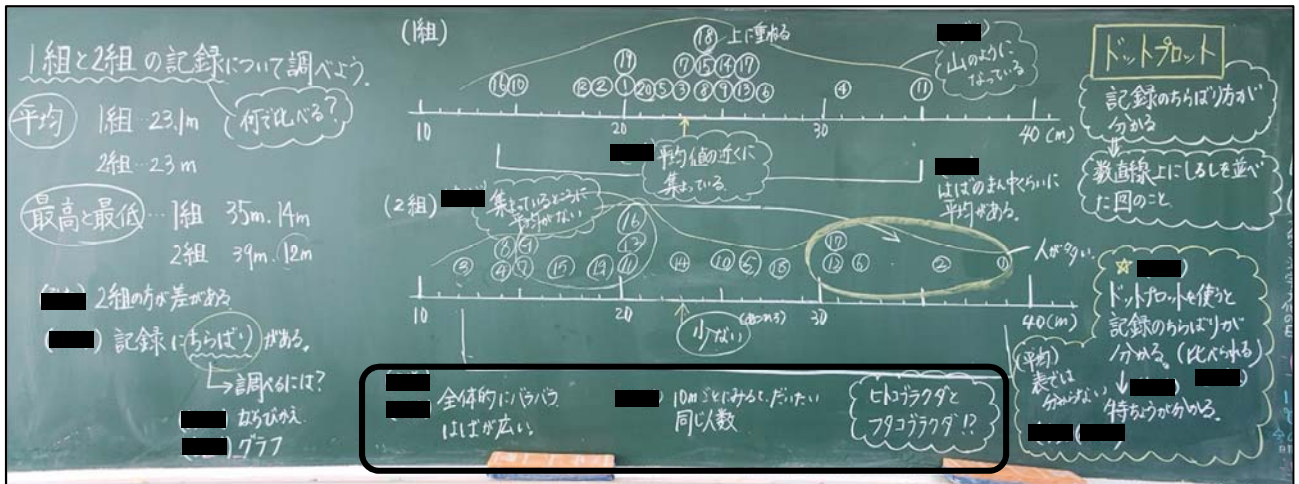 1組と2組の記録について調べよう。
何で比べる?
平均 1組…23.1m
2組…23m
最高と最低…1組 35m.14m
2組 39m.12m
2組の方が差がある。
記録にちらばりがある。
→調べるには?
ならびかえ
グラフ
(1組)
⑱ 上に重ねる
⑲ ⑦ ⑮ ⑭ ⑰
⑯ ⑩ ⑫ ② ① ⑳ ⑤ ③ ⑧ ⑨ ⑬ ⑥ ④ ⑪
10 20 30 40(m)
山のように
なっている
平均値の近くに
集まっている。
はばのまん中くらいに
平均がある。
(2組)
集まっているところに
平均がない
⑯
⑬ ⑰
③ ④ ⑦ ⑮ ⑲ ⑪ ⑭ ⑩ ⑤ ⑱ ⑫ ⑥ ② ①
人が少ない。
10 20 30 40(m)
少ない
全体的にバラバラ
はばが広い。
10mごとにみると、だいたい
同じ人数
ヒトコブラクダと
フタコブラクダ!?
ドットプロット
記録のちらばり方が
分かる
数直線上にしるしを並べ
た図のこと。
☆
ドットプロットを使うと
記録のちらばりが
分かる。(比べられる)
↓
特ちょうが分かる。
(平均)
表では
分からない